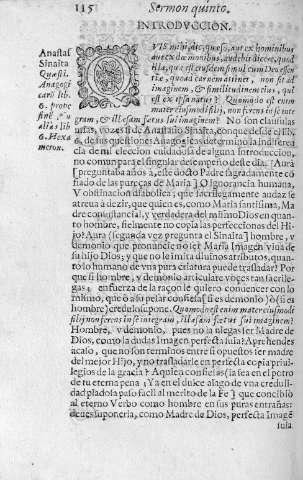 115 Sermon quinto.
INTRODVCCION.
Anastas.
Sinaita
Quæst.
Anagogi
car. lib.
6. prope
finē, & u
aliàs lib
6. Hexa
meron.
QVIS mihi, dic, quæso, aut ex hominibus
aut ex dæmonibus, audebit dicere, quod
filia, quæ est eiusdem simul cum Deo essen
tiæ, quoad carnem attinet, non sit ad
imaginem, & similitudinem eius, qui
est ex ipsa natus? Quomodo est enim
mater eiusmodi filij, non ferens in se inte
gram, & illæsam fœtus sui imaginem? No son clausulas
mias, vozes si de Anastasio Sinaita, con que desde el lib.
6. de sus questiones Anagogicas determina la indiferẽ
cia de mi eleccion cuidadosa de alguna Introduccion,
no comun para el singular desempeño deste dia. Aurà
[preguntaba años à, este docto Padre sagradamente cõ
fiado de las purezas de Maria] O Ignorancia humana,
V obstinacion diabolica, que sacrilegamente audaz se
atreua à dezir, que quien es, como Maria santissima, Ma
dre consubstancial, y verdadera del mismo Dios en quanto
hombre, fielmente no copia las perfecciones del Hi
jo? Aura (segunda vez pregunta el Sinaita) hombre, v
demonio que pronuncie no ier Maria Imagen viua de
su hijo Dios; y que no le imita diuinos atributos, quan
to lo humano de vna pura criatura puede trasladar? Por
que si hombre, y demonio articulare vozes tan sacrile-
gas; enfuerza de la raçon le quiero conuencer con lo
mismo, que ò à su pelar confiesa [si es demonio] ò [si es
hombre] credulo supone. Quomodo est enim mater eiusmodi
filij non ferens in se integram, illæsam fœtus sui imaginem?
Hombre, v demonio, pues no la niegas ser Madre de
Dios, como la dudas Imagen perfecta suia? Aprehendes
acaso, que no son terminos entre si opuestos ier madre
del mejor Hijo, y no trasladarle en perfecta copia priui-
legios de la gracia? Aqui ea confiesas (ia sea en el potro
de tu eterna pena; Ya en el dulce alago de vna credul-
dad piadosa paso facil al merito de la Fe] que concibiò
al eterno Verbo como hombre en sus puras entrañas:
deues suponerla, como Madre de Dios, perfecta Imagẽ
suia